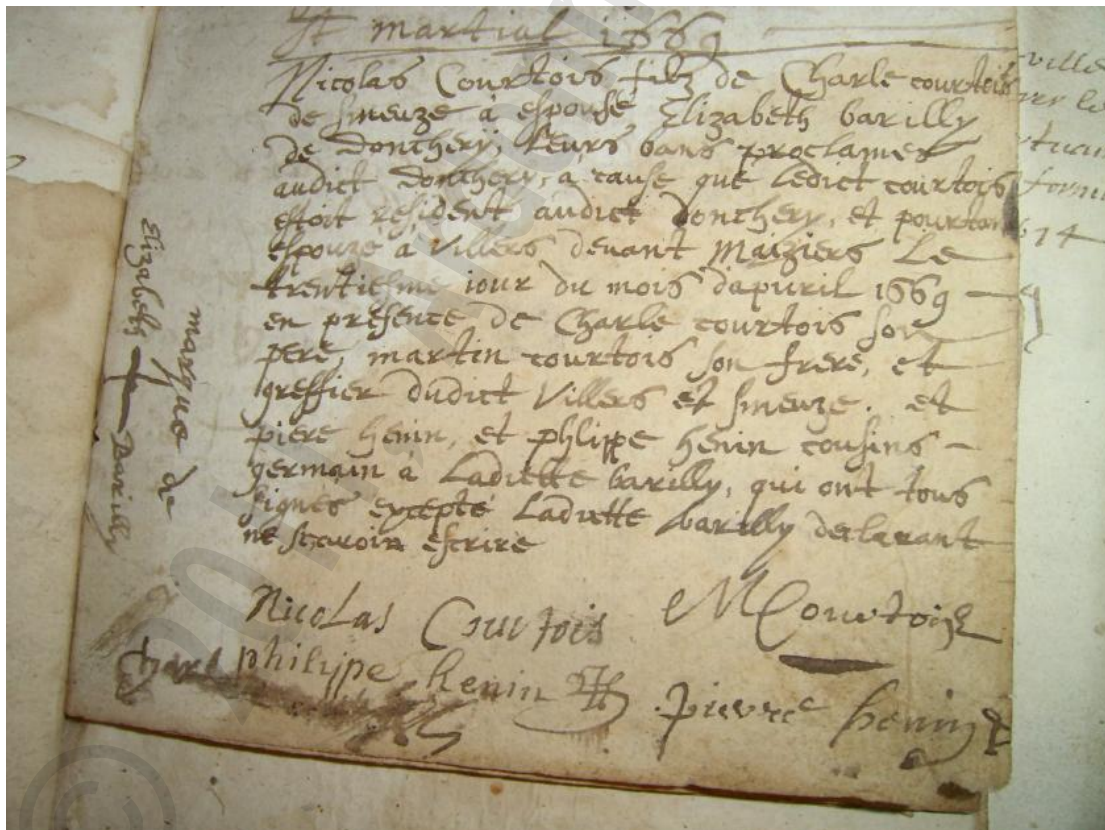 St martial 1669
Nicolas Courtois filz de Charle courtois
de smeuze à espousé Elizabeth barilly
de Donchery, Leurs bans proclames
audict Donchery, à cause que Ledict courtois
estoit resident audict Donchery, et pourtant
espouzé à Villers devant Maiziers Le
trentiesme iour du mois dapuril 1669
en présence de Charle courtois son
pere, martin courtois son frere, et
greffier dudict Villers et smeuze. et
piere henin, et phlippe henin cousins -
germain à Ladictte barilly, qui ont tous
signés excepté Ladictte barilly declarant
ne scavoir escrire
marque de
Elizabeth Barilly
Nicolas Courtois
M Courtois
Charl
philippe henin
pierre henin
ville
614